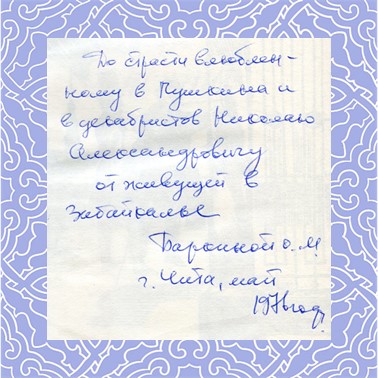 До страсти влюблен-
ному в Пушкина и
в декабристов Николаю
Александровичу
от живущей в
Забайкалье
О. М.
г. Чита, май
год.